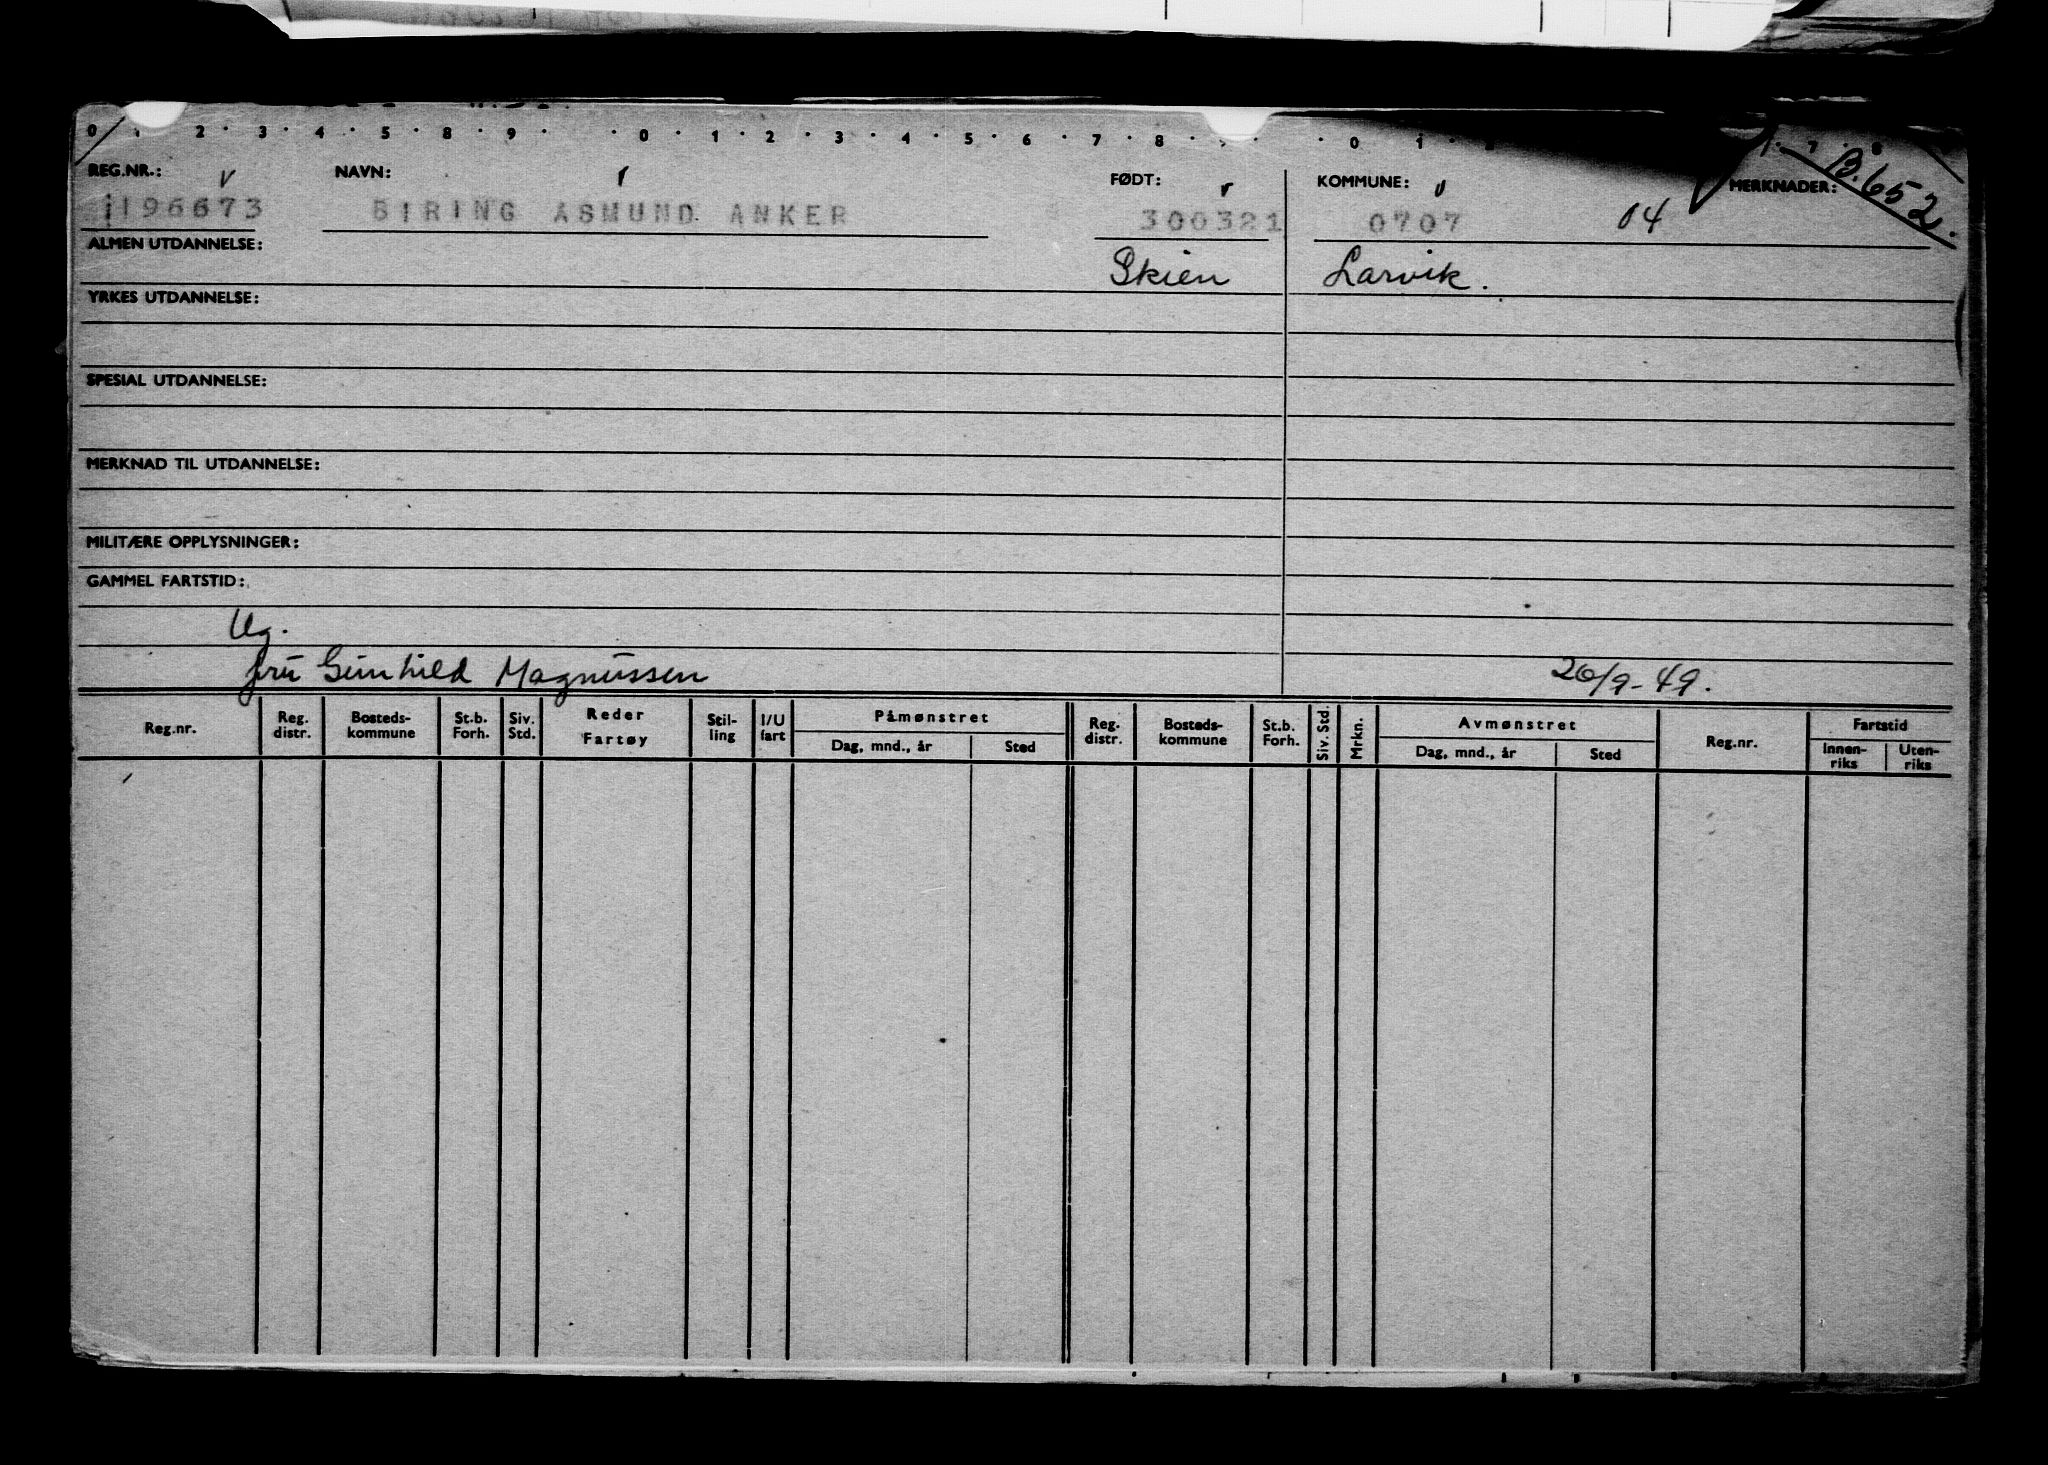 0 1 2 · 3 · 4 · 5 · 8 · 9 · · 0 · 1 · 2 · 3 · 4 · 5 · 6 · 7 · 8 · · · 0 · 1 · 7 · 8
REG.NR.: NAVN: FØDT: KOMMUNE: MERKNADER: B.652.
1196673 BIRING ASMUND ANKER 300321 0707 04
ALMEN UTDANNELSE: Skien Larvik.
YRKES UTDANNELSE:
SPESIAL UTDANNELSE:
MERKNAD TIL UTDANNELSE:
MILITÆRE OPPLYSNINGER:
GAMMEL FARTSTID:
Ug.
fru Gunhild Magnussen 26/9-49.
Reg.nr. Reg. distr. Bosteds-kommune St.b. Forh. Siv. Std. Reder Fartøy Stil-ling I/U fart Påmønstret Dag, mnd., år Sted Reg. distr. Bosteds-kommune St.b. Forh. Siv. Std. Mrkn. Avmønstret Dag, mnd., år Sted Reg.nr. Fartstid Innen-riks Uten-riks